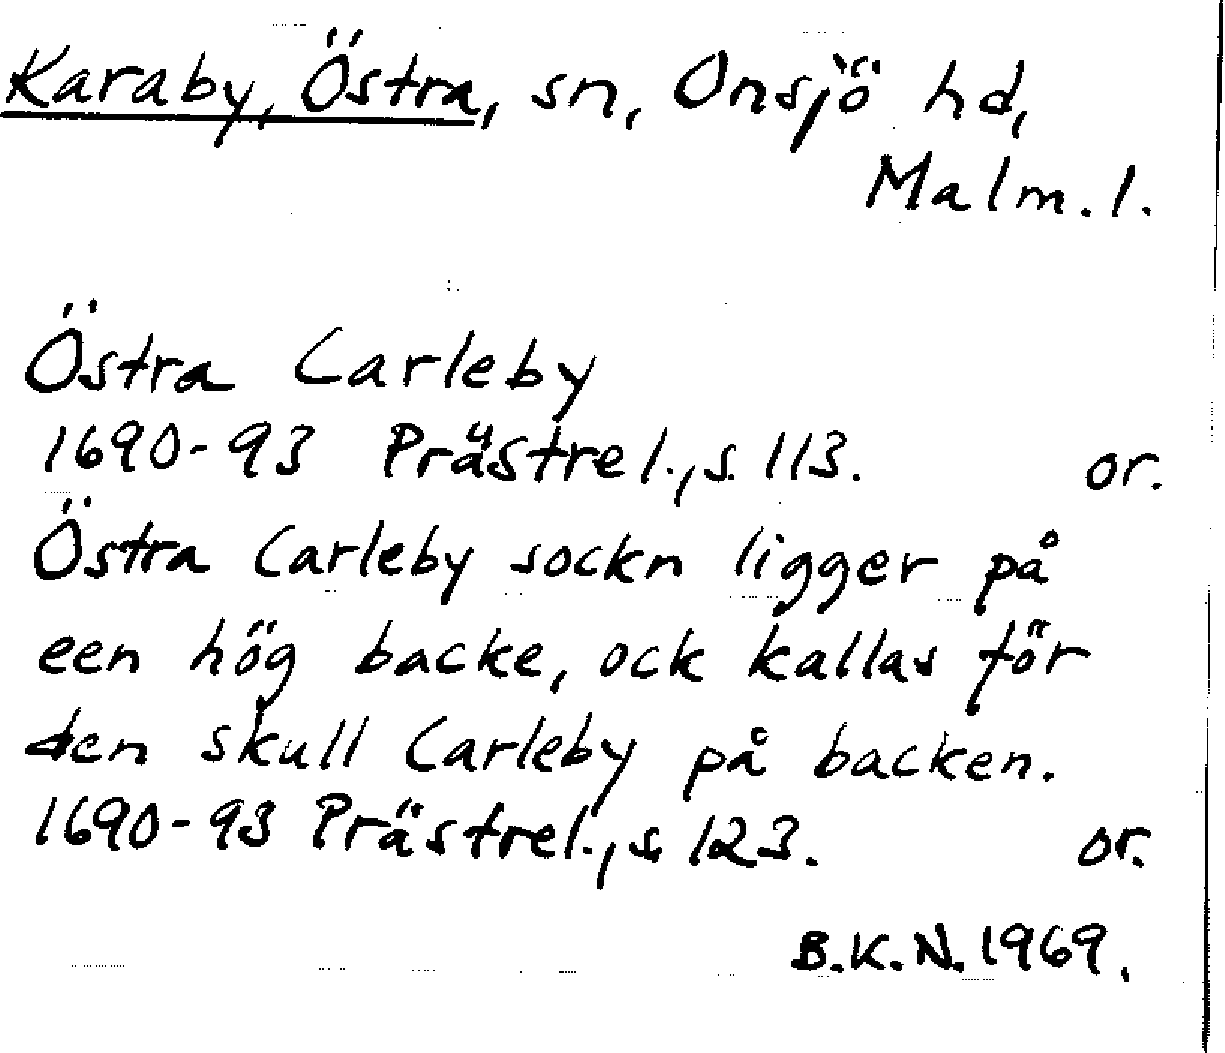 Karaby, Östra, sn, Onsjö hd,
Malm. l.
Östra Carleby
1690-93 Prästrel., s. 113. or.
Östra Carleby sockn ligger på
een hög backe, ock kallas för
den skull Carleby på backen.
1690-93 Prästrel., s. 123. or.
B.K.N. 1969.